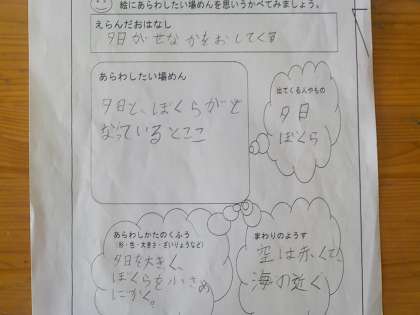 絵にあらわしたい場めんを思いうかべてみましょう。
えらんだおはなし
夕日がせなかをおしてくる
あらわしたい場めん
夕日と、ぼくらが
なっているところ
出てくる人やもの
夕日
ぼくら
あらわしかたのくふう
(形・色・大きさ・ざいりょうなど)
夕日を大きく、
ぼくらを小さめ
にかく。
まわりのようす
空は赤くて
海の近く